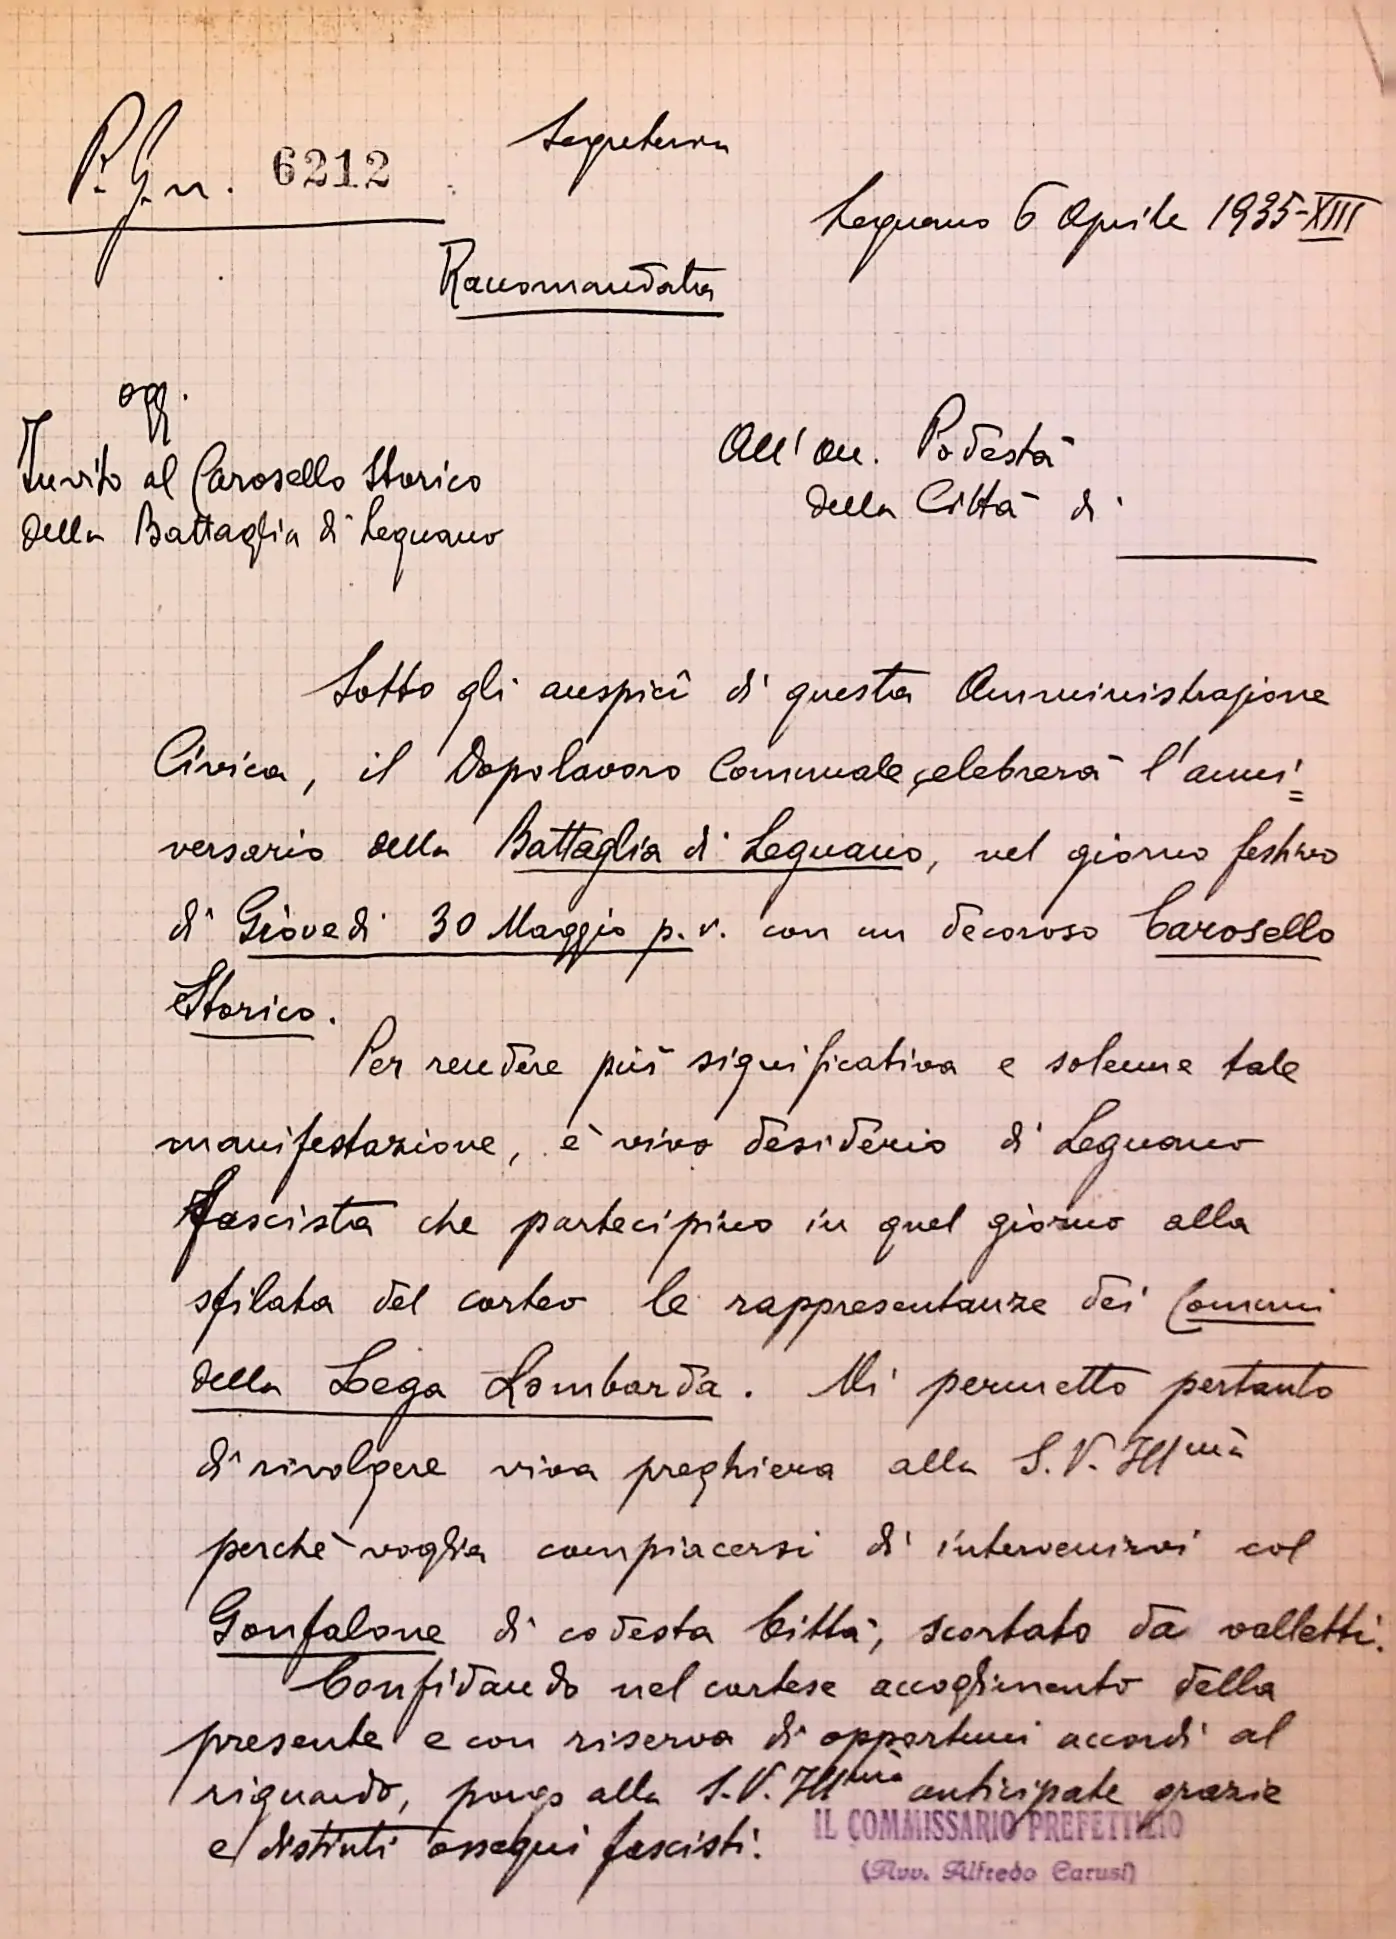 Segreteria
P. G. n. 6212
Legnano 6 Aprile 1935-XIII
Raccomandata
ogg.
Invito al Carosello Storico
della Battaglia di Legnano
All'on. Podestà
della Città di
Sotto gli auspicî di questa Amministrazione
Civica, il Dopolavoro Comunale, celebrerà l'anni=
versario della Battaglia di Legnano, nel giorno festivo
di Giovedi 30 Maggio p. v. con un decoroso Carosello
Storico.
Per rendere più significativa e solenne tale
manifestazione, è vivo desiderio di Legnano
fascista che partecipino in quel giorno alla
sfilata del corteo le rappresentanze dei Comuni
della Lega Lombarda. Mi permetto pertanto
di rivolgere viva preghiera alla S. V. Ill.ma
perchè voglia compiacersi di intervenirvi col
Gonfalone di codesta Città, scortato da valletti.
Confidando nel cortese accoglimento della
presente e con riserva di opportuni accordi al
riguardo, porgo alla S. V. Ill.ma anticipate grazie
e distinti ossequi fascisti.
IL COMMISSARIO PREFETTIZIO
(Avv. Alfredo Carusi)